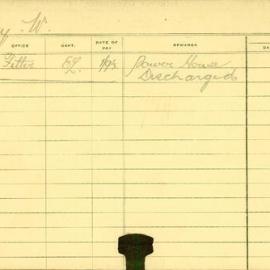 y W.
OFFICE DEPT. DATE OF PAY REMARKS DA
Fitter El. Power House
Discharged